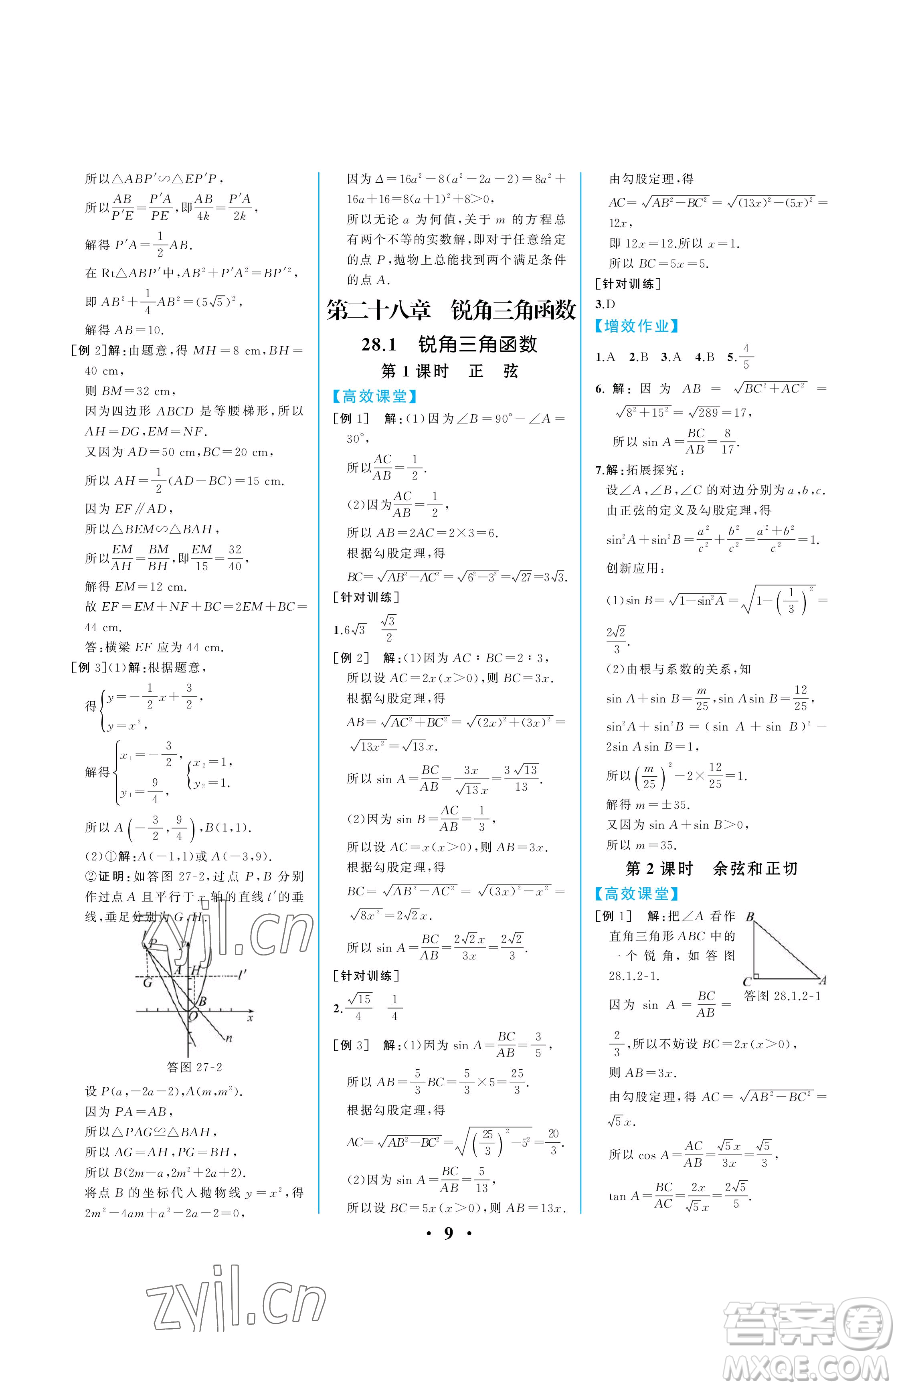 所以△ABP′∽△EP′P,
所以AB/P′E=P′A/PE,即AB/4k=P′A/2k,
解得 P′A=1/2AB.
在 Rt△ABP′中,AB²+P′A²=BP′²,
即 AB²+1/4AB²=(5√5)²,
解得 AB=10.
[例 2]解:由题意,得 MH=8 cm,BH=
40 cm,
则 BM=32 cm,
因为四边形 ABCD 是等腰梯形,所以
AH=DG,EM=NF,
又因为 AD=50 cm,BC=20 cm,
所以 AH=1/2(AD-BC)=15 cm.
因为 EF∥AD,
所以△BEM∽△BAH,
所以EM/AH=BM/BH,即EM/15=32/40,
解得 EM=12 cm.
故 EF=EM+NF+BC=2EM+BC=
44 cm.
答:横梁 EF 应为 44 cm.
[例 3](1)解:根据题意,
得{y=-1/2x+3/2,
y=x²,
解得{x₁=-3/2,
y₁=9/4,
{x₂=1,
y₂=1.
所以 A(-3/2,9/4),B(1,1).
(2)①解:A(-1,1)或 A(-3,9).
②证明:如答图 27-2,过点 P、B 分别
作过点 A 且平行于 x 轴的直线 l′的垂
线,垂足分别为 G、H.
l
P
G
A
H
l′
B
O
x
n
答图 27-2
设 P(a,-2a-2),A(m,m²).
因为 PA=AB,
所以△PAG≌△BAH,
所以 AG=AH,PG=BH,
所以 B(2m-a,2m²+2a+2).
将点 B 的坐标代入抛物线 y=x²,得
2m²-4am+a²-2a-2=0,
因为 Δ=16a²-8(a²-2a-2)=8a²+
16a+16=8(a+1)²+8>0,
所以无论 a 为何值,关于 m 的方程总
有两个不等的实数解,即对于任意给定
的点 P,抛物上总能找到两个满足条件
的点 A.
第二十八章 锐角三角函数
28.1 锐角三角函数
第 1 课时 正 弦
【高效课堂】
[例 1] 解:(1)因为∠B=90°-∠A=
30°,
所以AC/AB=1/2.
(2)因为AC/AB=1/2,
所以 AB=2AC=2×3=6.
根据勾股定理,得
BC=√AB²-AC²=√6²-3²=√27=3√3.
[针对训练]
1.6√3 √3/2
[例 2] 解:(1)因为 AC∶BC=2∶3,
所以设 AC=2x(x>0),则 BC=3x.
根据勾股定理,得
AB=√AC²+BC²=√(2x)²+(3x)²=
√13x²=√13x.
所以 sin A=BC/AB=3x/√13x=3√13/13.
(2)因为 sin B=AC/AB=1/3,
所以设 AC=x(x>0),则 AB=3x.
根据勾股定理,得
BC=√AB²-AC²=√(3x)²-x²=
√8x²=2√2x,
所以 sin A=BC/AB=2√2x/3x=2√2/3.
[针对训练]
2.√15/4 1/4
[例 3] 解:(1)因为 sin A=BC/AB=3/5,
所以 AB=5/3BC=5/3×5=25/3.
根据勾股定理,得
AC=√AB²-BC²=√(25/3)²-5²=20/3.
(2)因为 sin A=BC/AB=5/13,
所以设 BC=5x(x>0),则 AB=13x.
由勾股定理,得
AC=√AB²-BC²=√(13x)²-(5x)²=
12x,
即 12x=12.所以 x=1.
所以 BC=5x=5.
[针对训练]
3.D
【增效作业】
1.A 2.B 3.A 4.B 5.4/5
6.解:因 为 AB=√BC²+AC²=
√8²+15²=√289=17,
所以 sin A=BC/AB=8/17.
7.解:拓展探究:
设∠A、∠B、∠C 的对边分别为 a,b,c.
由正弦的定义及勾股定理,得
sin²A+sin²B=a²/c²+b²/c²=a²+b²/c²=1.
创新应用:
(1)sin B=√1-sin²A=√1-(1/3)²=
2√2/3.
(2)由根与系数的关系,知
sin A+sin B=m/25,sin Asin B=12/25,
sin²A+sin²B=(sin A+sin B)²-
2sin Asin B=1,
所以(m/25)²-2×12/25=1.
解得 m=±35.
又因为 sin A+sin B>0,
所以 m=35.
第 2 课时 余弦和正切
【高效课堂】
[例 1] 解:把∠A 看作
直角三角形 ABC 中的
一个 锐 角,如 答 图
28.1.2-1.
B
C
A
答图 28.1.2-1
因为 sin A=BC/AB=
2/3,所以不妨设 BC=2x(x>0),
则 AB=3x.
由勾股定理,得 AC=√AB²-BC²=
√5x.
所以 cos A=AC/AB=√5x/3x=√5/3,
tan A=BC/AC=2x/√5x=2√5/5.
• 9 •
zyjl.cn
zyjl.cn
答案圈
MXQE.COM